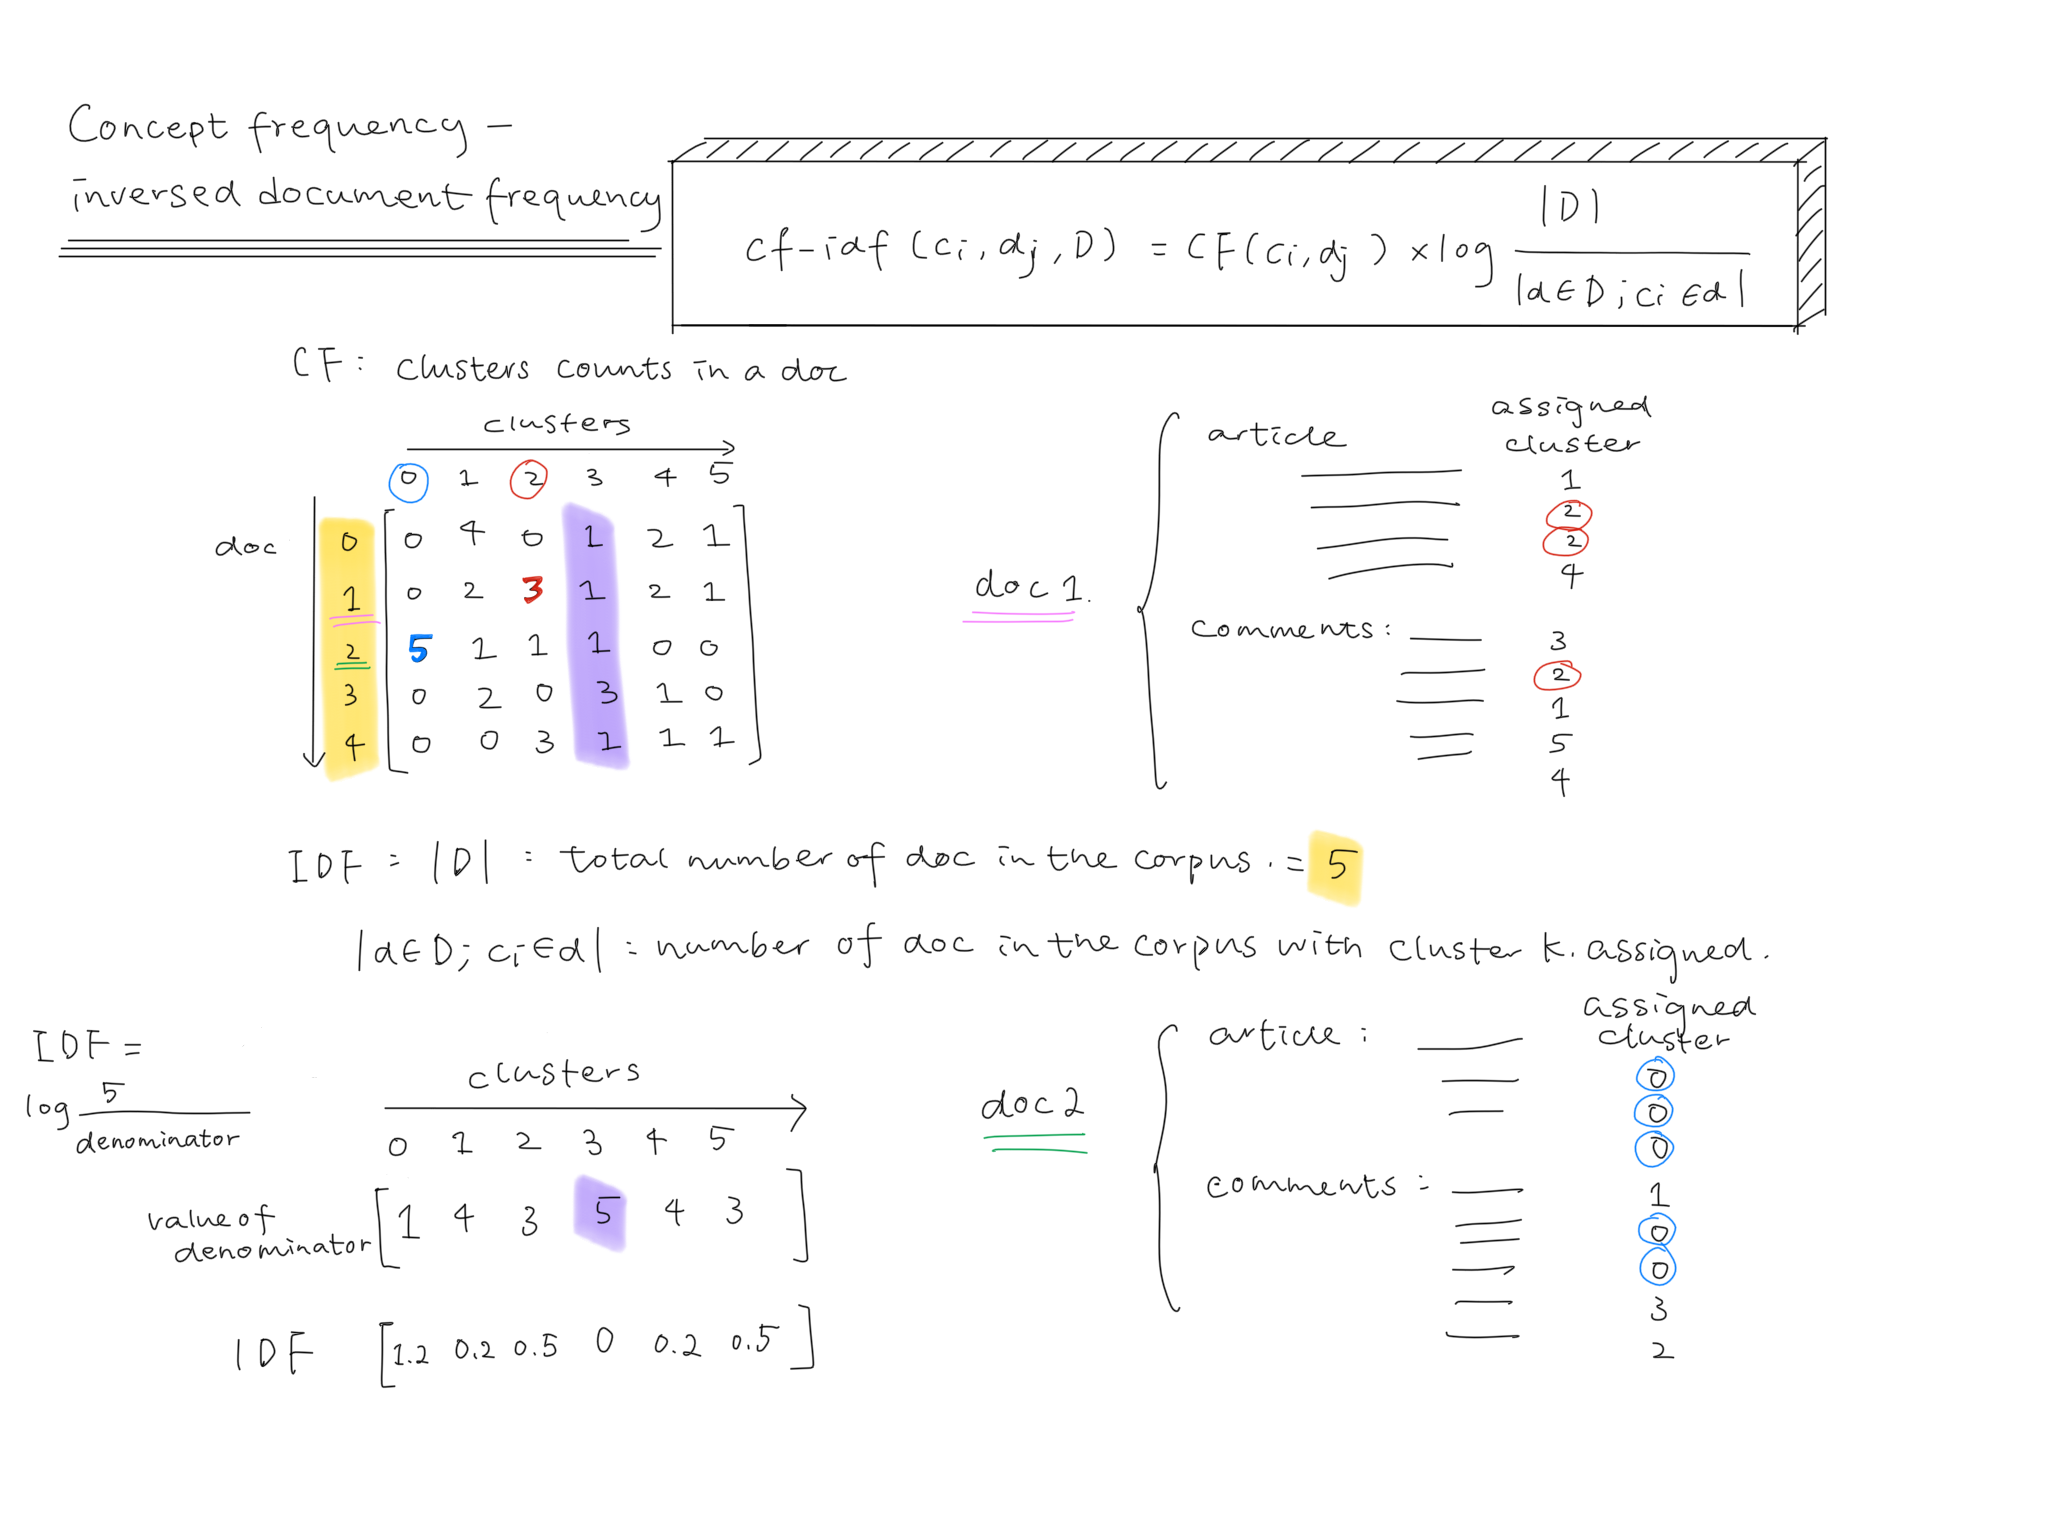 Concept frequency –
inversed document frequency
cf-idf (ci, dj, D) = CF(ci, dj) × log |D| / |d∈D ; ci ∈d|
CF: clusters counts in a doc
clusters
0 1 2 3 4 5
doc
0 0 4 0 1 2 1
1 0 2 3 1 2 1
2 5 1 1 1 0 0
3 0 2 0 3 1 0
4 0 0 3 1 1 1
doc 1.
article
assigned
cluster
1
2
2
4
comments:
3
2
1
5
4
IDF = |D| : total number of doc in the corpus. = 5
|d∈D; ci∈d| : number of doc in the corpus with cluster k. assigned.
IDF =
log 5 / denominator
clusters
0 1 2 3 4 5
value of
denominator
[1 4 3 5 4 3]
IDF [1.2 0.2 0.5 0 0.2 0.5]
doc 2
article :
assigned
cluster
0
0
0
comments :
1
0
0
3
2